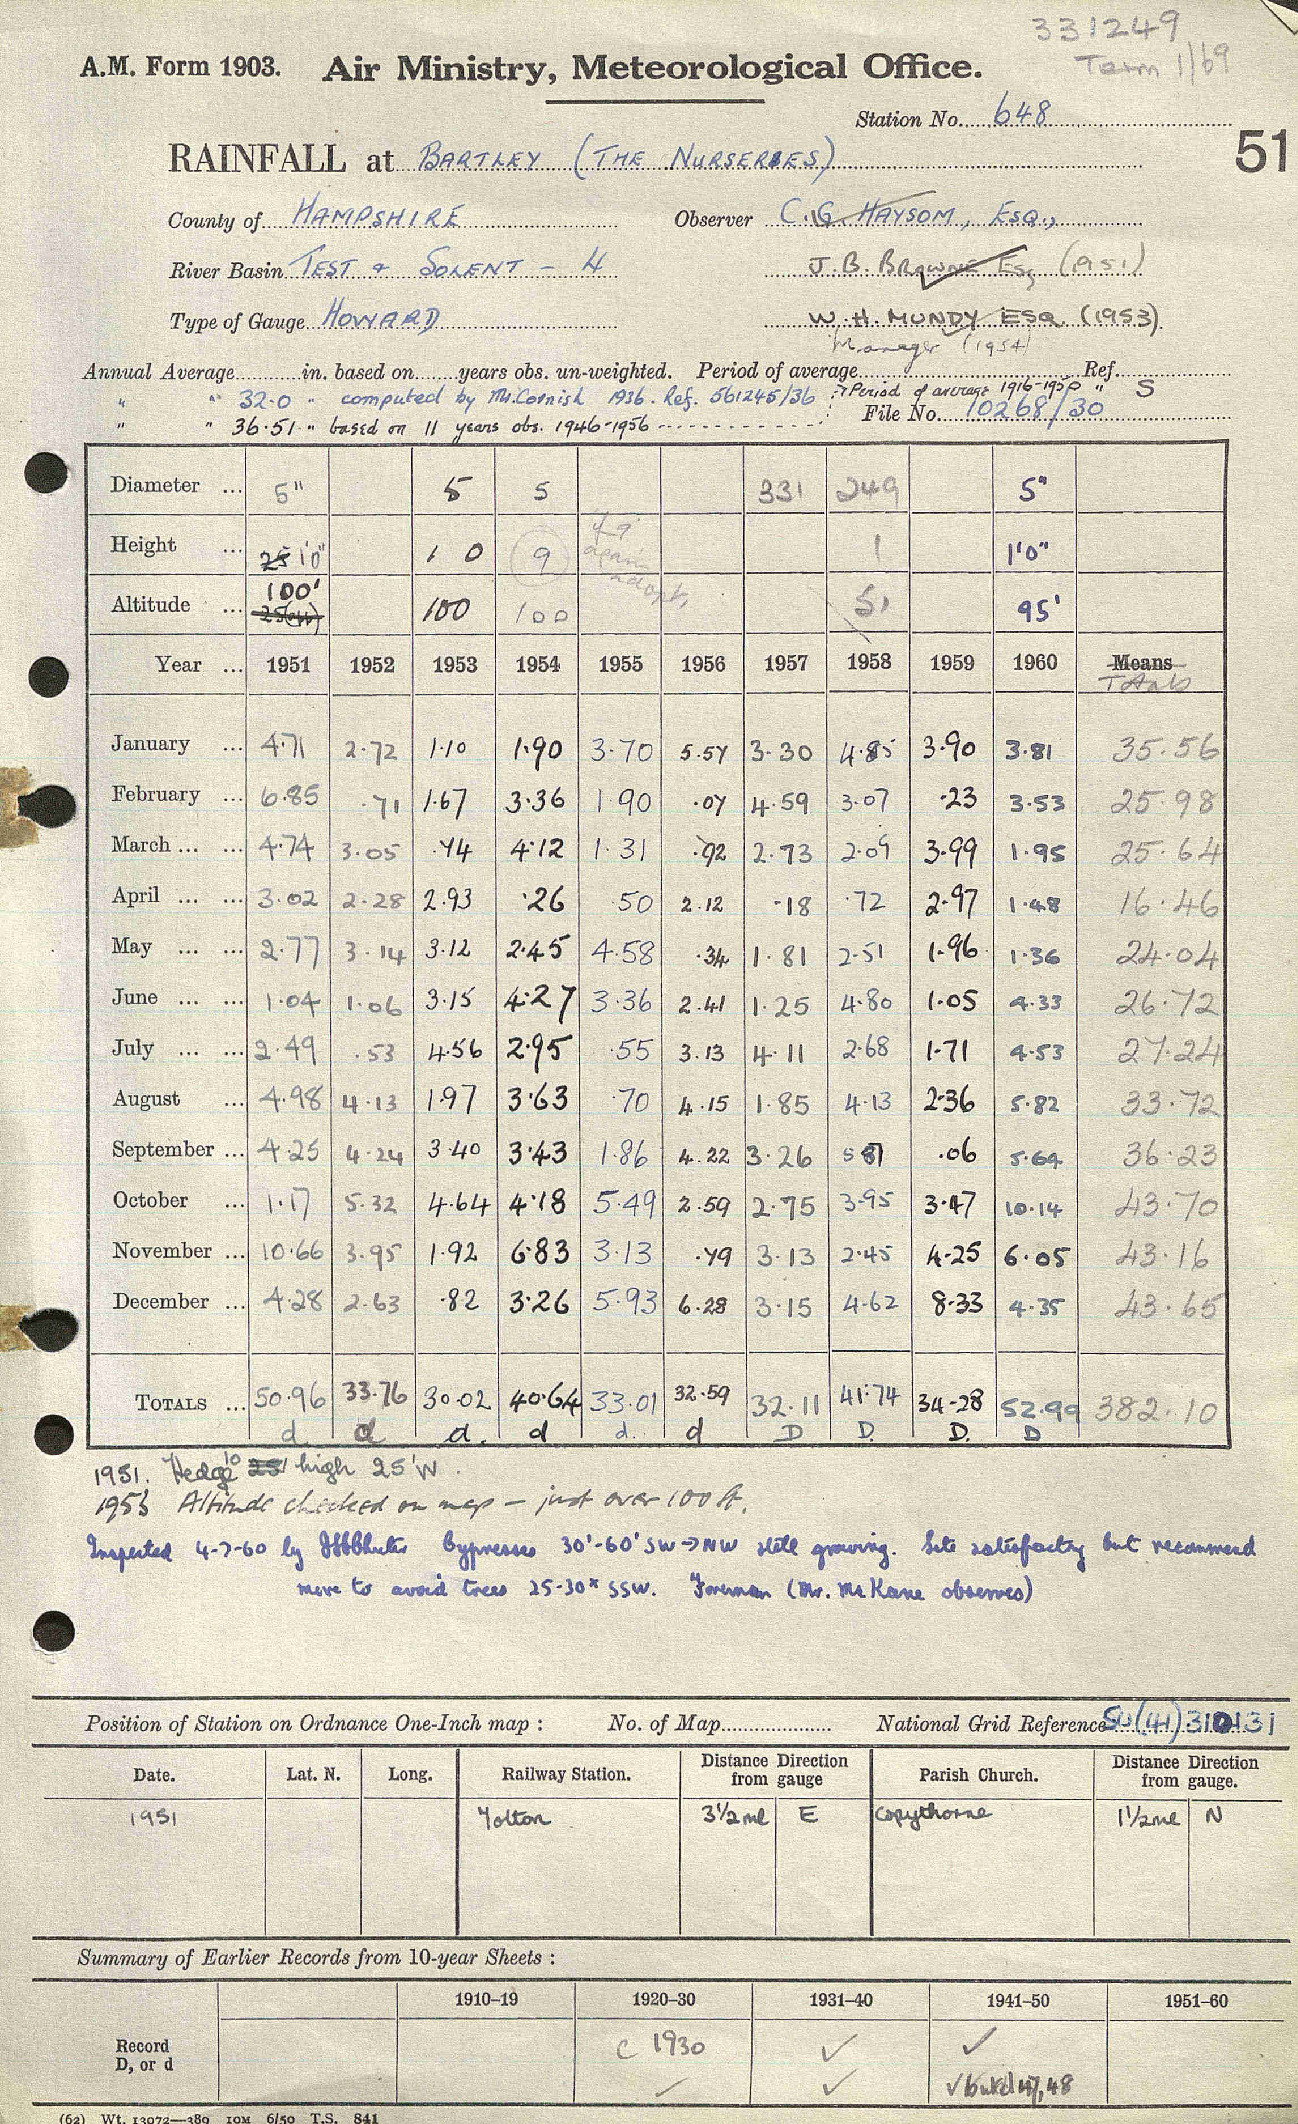 331249
Term 1/69
A.M. Form 1903. Air Ministry, Meteorological Office.
Station No. 648
51
RAINFALL at BARTLEY (THE NURSERIES)
County of HAMPSHIRE Observer C.G. HAYSOM, ESQ.,
River Basin TEST & SOLENT - 4 J.B. BROWNE Esq (1951)
Type of Gauge HOWARD W.H. MUNDY ESQ. (1953)
Manager (1954)
Annual Average in. based on years obs. un-weighted. Period of average Ref.
" " 32.0 " computed by Mr. Cornish 1936. Ref. 561245/36 Period of average 1916-1950 " S
File No. 10268/30
" " 36.51 " based on 11 years obs. 1946-1956
Diameter ... 5" 5 5 331 249 5"
Height ... 25 1'0" 1 0 9 1 1'0"
again adopt,
Altitude ... 100' 100 100 51 95'
Year ... 1951 1952 1953 1954 1955 1956 1957 1958 1959 1960 Means
Totals
January ... 4.71 2.72 1.10 1.90 3.70 5.57 3.30 4.85 3.90 3.81 35.56
February ... 6.85 .71 1.67 3.36 1.90 .07 4.59 3.07 .23 3.53 25.98
March ... ... 4.74 3.05 .74 4.12 1.31 .92 2.73 2.09 3.99 1.95 25.64
April ... ... 3.02 2.28 2.93 .26 .50 2.12 .18 .72 2.97 1.48 16.46
May ... ... 2.77 3.14 3.12 2.45 4.58 .34 1.81 2.51 1.96 1.36 24.04
June ... ... 1.04 1.06 3.15 4.27 3.36 2.41 1.25 4.80 1.05 4.33 26.72
July ... ... 2.49 .53 4.56 2.95 .55 3.13 4.11 2.68 1.71 4.53 27.24
August ... 4.98 4.13 1.97 3.63 .70 4.15 1.85 4.13 2.36 5.82 33.72
September ... 4.25 4.24 3.40 3.43 1.86 4.22 3.26 5.87 .06 5.64 36.23
October ... 1.17 5.32 4.64 4.18 5.49 2.59 2.75 3.95 3.47 10.14 43.70
November ... 10.66 3.95 1.92 6.83 3.13 .79 3.13 2.45 4.25 6.05 43.16
December ... 4.28 2.63 .82 3.26 5.93 6.28 3.15 4.62 8.33 4.35 43.65
TOTALS ... 50.96 33.76 30.02 40.64 33.01 32.59 32.11 41.74 34.28 52.99 382.10
d d d. d d. d D D. D. D
1951. Hedge 10 25' high 25'W.
1953 Altitude checked on map - just over 100 ft.
Inspected 4-7-60 by Cypresses 30'-60' SW→NW still growing. Site satisfactory but recommend
move to avoid trees 25-30° SSW. Foreman (Mr. McKane observes)
Position of Station on Ordnance One-Inch map : No. of Map National Grid Reference SU(41)310131
Date. Lat. N. Long. Railway Station. Distance from gauge Direction Parish Church. Distance from gauge. Direction
1951 Totton 3½ ml E Copythorne 1½ ml N
Summary of Earlier Records from 10-year Sheets :
1910–19 1920–30 1931–40 1941–50 1951–60
Record c 1930 ✓ ✓
D, or d ✓ ✓ ✓ but d 47, 48
(62) Wt. 13072—389 10M 6/50 T.S. 841